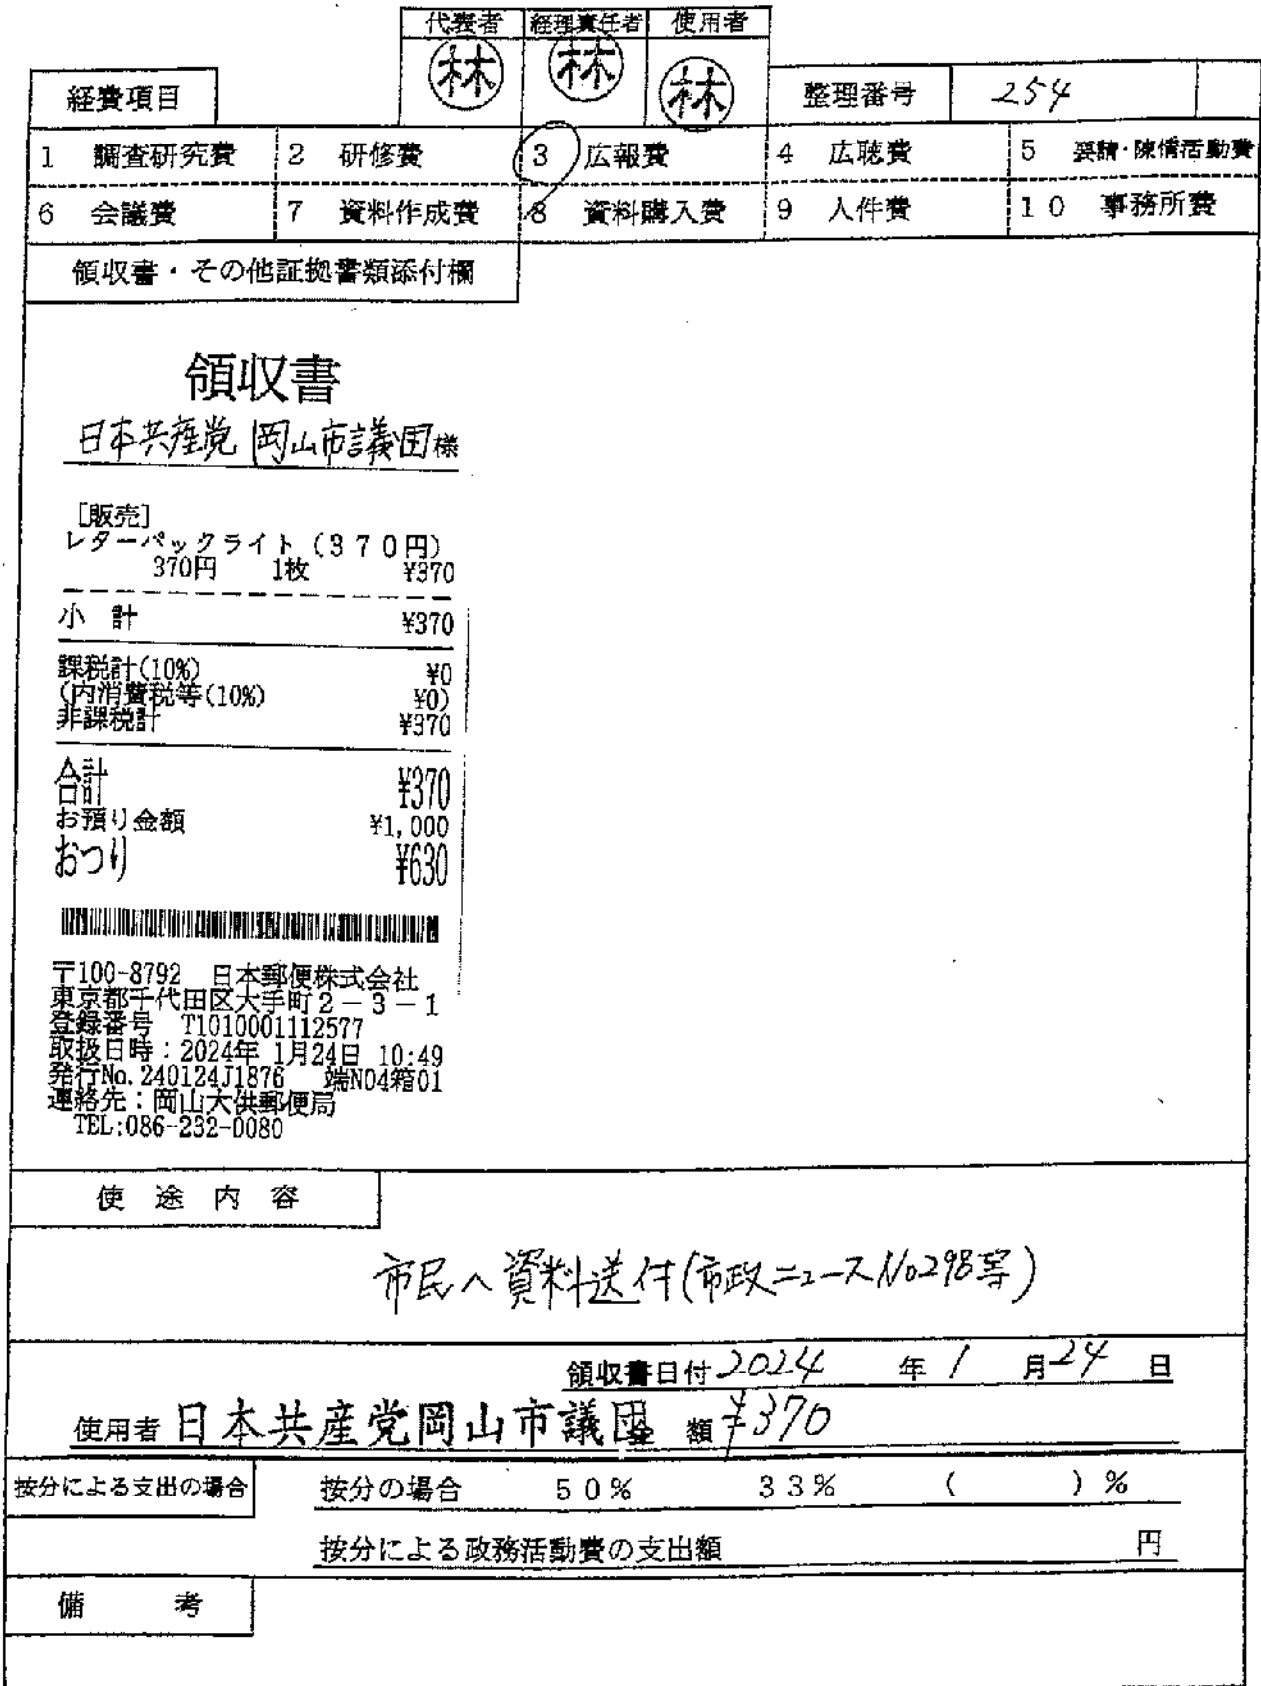 代表者 経理責任者 使用者
林 林 林
経費項目 整理番号 254
1 調査研究費 2 研修費 3 広報費 4 広聴費 5 要請・陳情活動費
6 会議費 7 資料作成費 8 資料購入費 9 人件費 10 事務所費
領収書・その他証拠書類添付欄
領収書
日本共産党 岡山市議団様
[販売]
レターパックライト(370円)
370円 1枚 ¥370
小計 ¥370
課税計(10%) ¥0
(内消費税等(10%) ¥0)
非課税計 ¥370
合計 ¥370
お預り金額 ¥1,000
おつり ¥630
〒100-8792 日本郵便株式会社
東京都千代田区大手町2-3-1
登録番号 T1010001112577
取扱日時:2024年 1月24日 10:49
発行No.240124J1876 端N04箱01
連絡先:岡山大供郵便局
TEL:086-232-0080
使途内容
市民へ資料送付(市政ニュースNo298等)
領収書日付 2024 年 1 月 24 日
使用者 日本共産党岡山市議団 金額 ¥370
按分による支出の場合 按分の場合 50% 33% ( )%
按分による政務活動費の支出額 円
備考